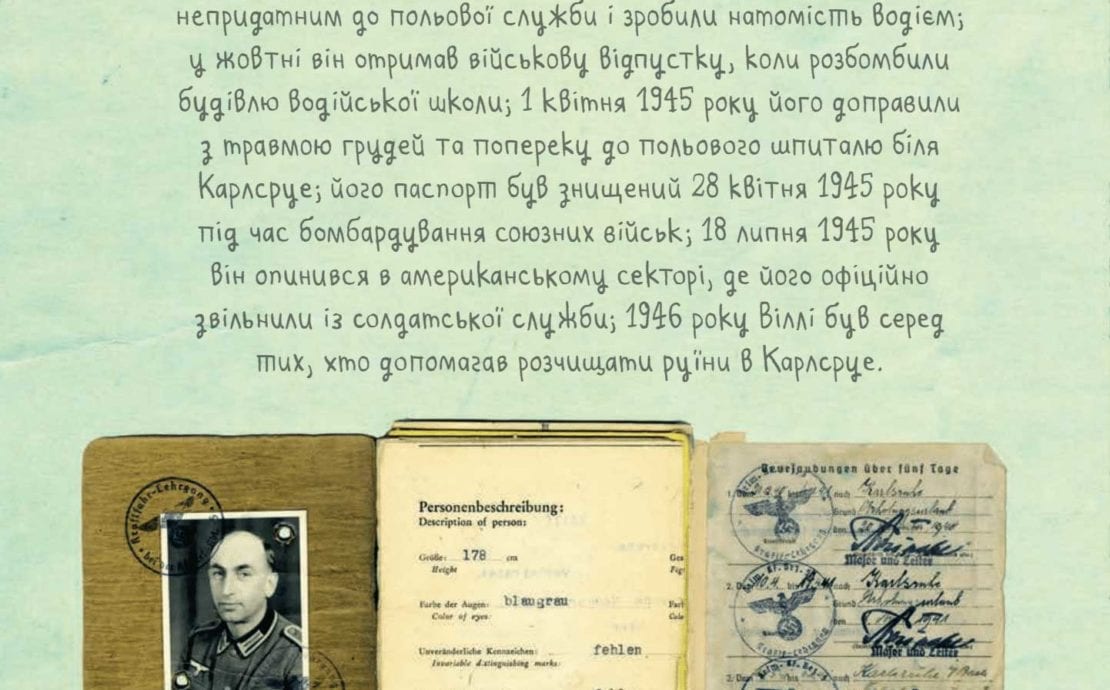 непридатним до польової служби і зробили натомість водієм;
у жовтні він отримав військову відпустку, коли розбомбили
будівлю водійської школи; 1 квітня 1945 року його доправили
з травмою грудей та попереку до польового шпиталю біля
Карлсруе; його паспорт був знищений 28 квітня 1945 року
під час бомбардування союзних військ; 18 липня 1945 року
він опинився в американському секторі, де його офіційно
звільнили із солдатської служби; 1946 року Віллі був серед
тих, хто допомагав розчищати руїни в Карлсруе.
Kraftfahr-Lehrgang
Personenbeschreibung:
Description of person:
Größe: 178 cm
Height
Farbe der Augen: blaugrau
Color of eyes:
Unveränderliche Kennzeichen: fehlen
Invariable distinguishing marks:
Beurlaubungen über fünf Tage
1. nach Karlsruhe
Grund Erholungsurlaub
Major und Leiter
2. nach Karlsruhe
Grund Erholungsurlaub
Major und Leiter
Karlsruhe